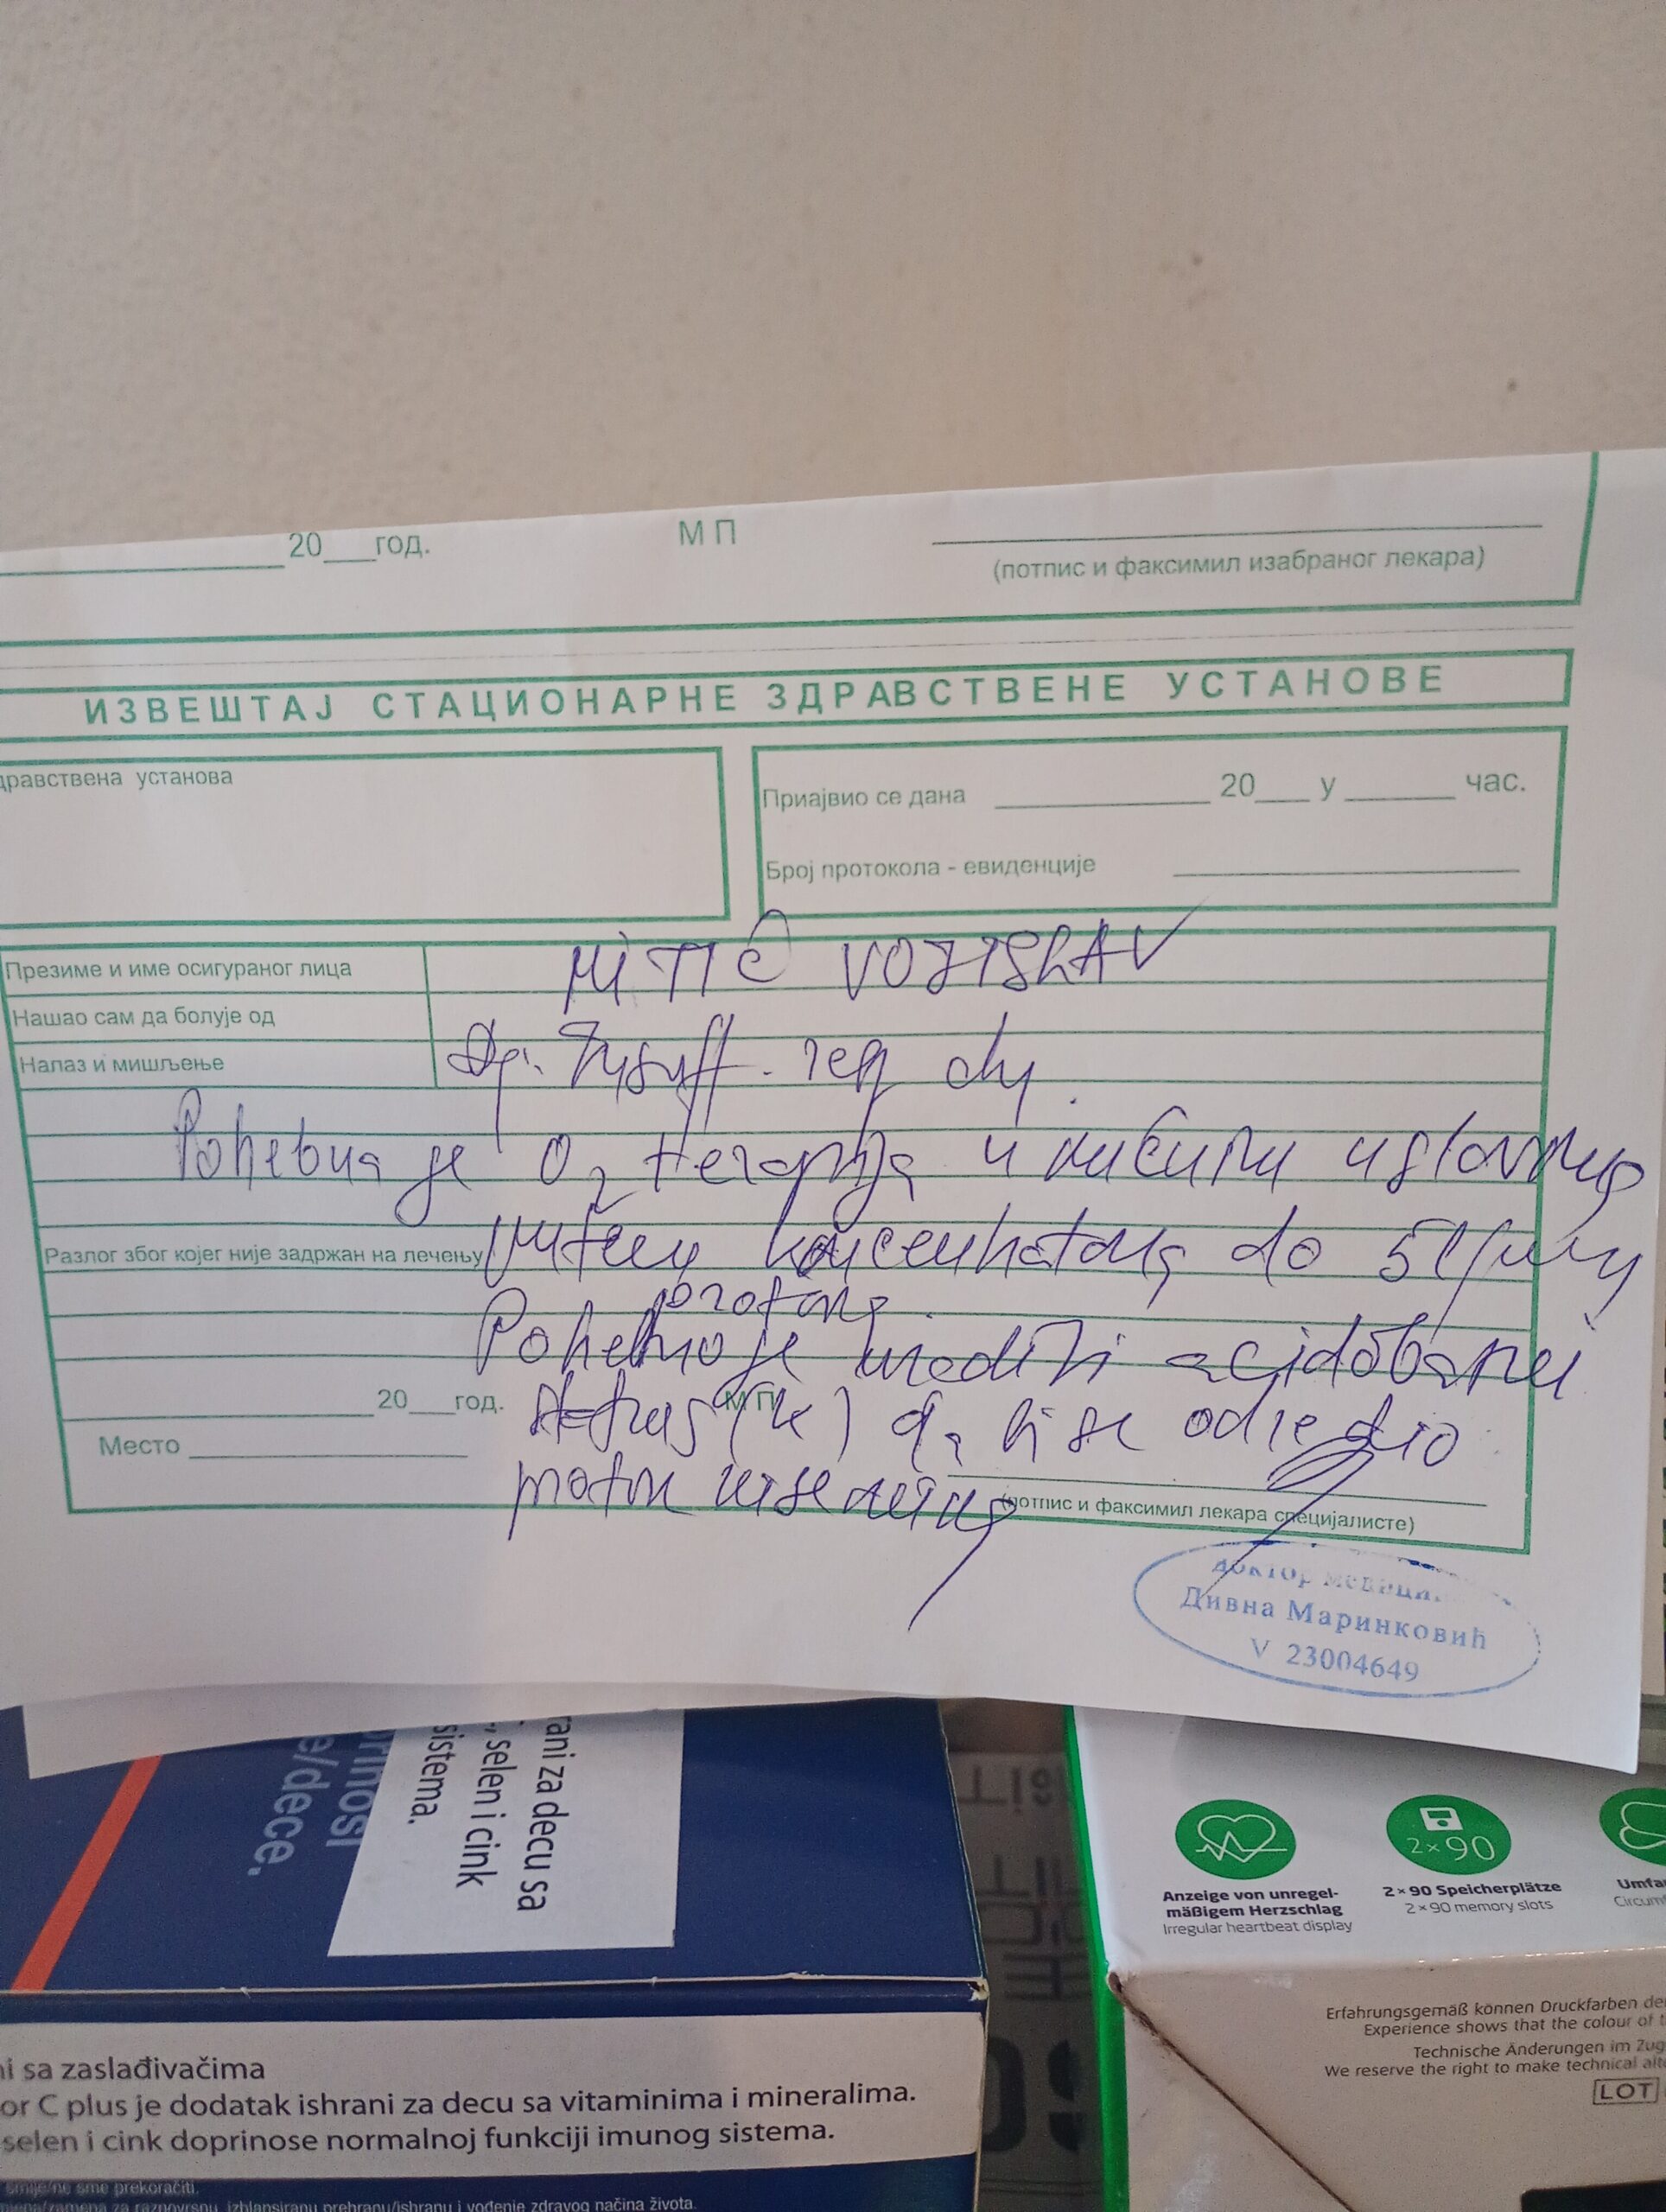 20___год.
М П
(потпис и факсимил изабраног лекара)
ИЗВЕШТАЈ СТАЦИОНАРНЕ ЗДРАВСТВЕНЕ УСТАНОВЕ
дравствена установа
Приајвио се дана ____________ 20___ у _______ час.
Број протокола - евиденције
Презиме и име осигураног лица
MITIĆ VOJISLAV
Нашао сам да болује од
Налаз и мишљење
Dg. Insuff. resp
Potrebna je O2 terapija u kućnim uslovima
putem koncentratora do 5l/min
protoka
Разлог због којег није задржан на лечењу
Potrebno je uraditi acidobazni
status (k) da bi se odredio
protok kiseonika
20___год.
МП
Место
(потпис и факсимил лекара специјалисте)
доктор медици
Дивна Маринковић
V 23004649
rani za decu sa
, selen i cink
sistema.
prinosi
e/dece.
ni sa zaslađivačima
or C plus je dodatak ishrani za decu sa vitaminima i mineralima.
selen i cink doprinose normalnoj funkciji imunog sistema.
smije/ne sme prekoračiti.
zamena za raznovrsnu, izbalansiranu prehranu/ishranu i vođenje zdravog načina života.
2×90
Anzeige von unregel-
mäßigem Herzschlag
Irregular heartbeat display
2×90 Speicherplätze
2×90 memory slots
Umfa
Circum
Erfahrungsgemäß können Druckfarben de
Experience shows that the colour of t
Technische Änderungen im Zug
We reserve the right to make technical alt
LOT